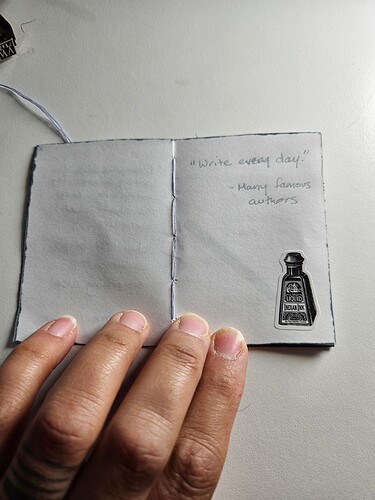 "Write every day."
- Many famous
authors
LIQUID
INDIAN INK